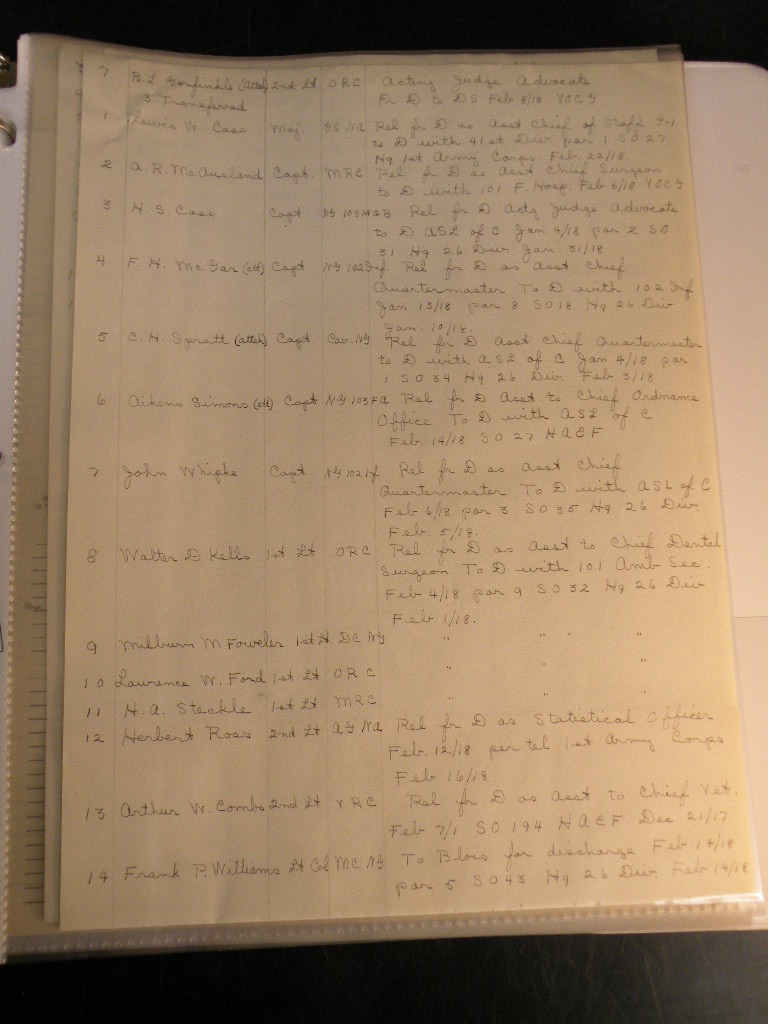 7 B. L. Garfinkle (attch) 2nd Lt ORC Acting Judge Advocate
3 Transferred Fr D to DS Feb 8/18 VOCG
1 Lewis W. Cass Maj. IS NA Rel fr D as Asst Chief of Staff G-1
to D with 41st Div par 1 SO 27
Hq 1st Army Corps. Feb 22/18.
2 A. R. McAusland Capt. MRC Rel fr D as Asst Chief Surgeon
to D with 101 F. Hosp. Feb 6/18 VOCG
3 H. S. Cass Capt NG 103 MGB Rel fr D Actg Judge Advocate
to D ASL of C Jan 4/18 par 2 SO
31 Hq 26 Div Jan. 31/18
4 F. H. McGar (att) Capt NG 102 Inf. Rel fr D as Asst Chief
Quartermaster To D with 102 Inf
Jan 13/18 par 8 SO18 Hq 26 Div
Jan. 10/18.
5 C. H. Spratt (attch) Capt. Cav. NG Rel fr D Asst Chief Quartermaster
to D with ASL of C Jan 4/18 par
1 SO 34 Hq 26 Div. Feb 3/18
6 Aikens Simons (att) Capt NG 103 FA Rel fr D Asst to Chief Ordnance
Office To D with ASL of C
Feb. 14/18 SO 27 HAEF
7 John Whipke Capt NG 102 Inf Rel fr D as Asst Chief
Quartermaster To D with ASL of C
Feb 6/18 par 3 SO 35 Hq 26 Div.
Feb. 5/18.
8 Walter D Kells 1st Lt ORC Rel fr D as Asst to Chief Dental
Surgeon To D with 101 Amb Sec.
Feb 4/18 par 9 SO 32 Hq 26 Div
Feb 1/18.
9 Milburn M Foweler 1st Lt. DC NG " " "
10 Lawrence W. Ford 1st Lt ORC " " "
11 H. A. Steckle 1st Lt MRC " " "
12 Herbert Ross 2nd Lt AG NA Rel fr D as Statistical Officer
Feb. 12/18 per tel 1st Army Corps
Feb 16/18
13 Arthur W. Combs 2nd Lt VRC Rel fr D as Asst to Chief Vet.
Feb 7/1 SO 194 HAEF Dec 21/17
14 Frank P. Williams Lt Col MC NG To Blois for discharge Feb 14/18
par 5 SO 43 Hq 26 Div. Feb 14/18